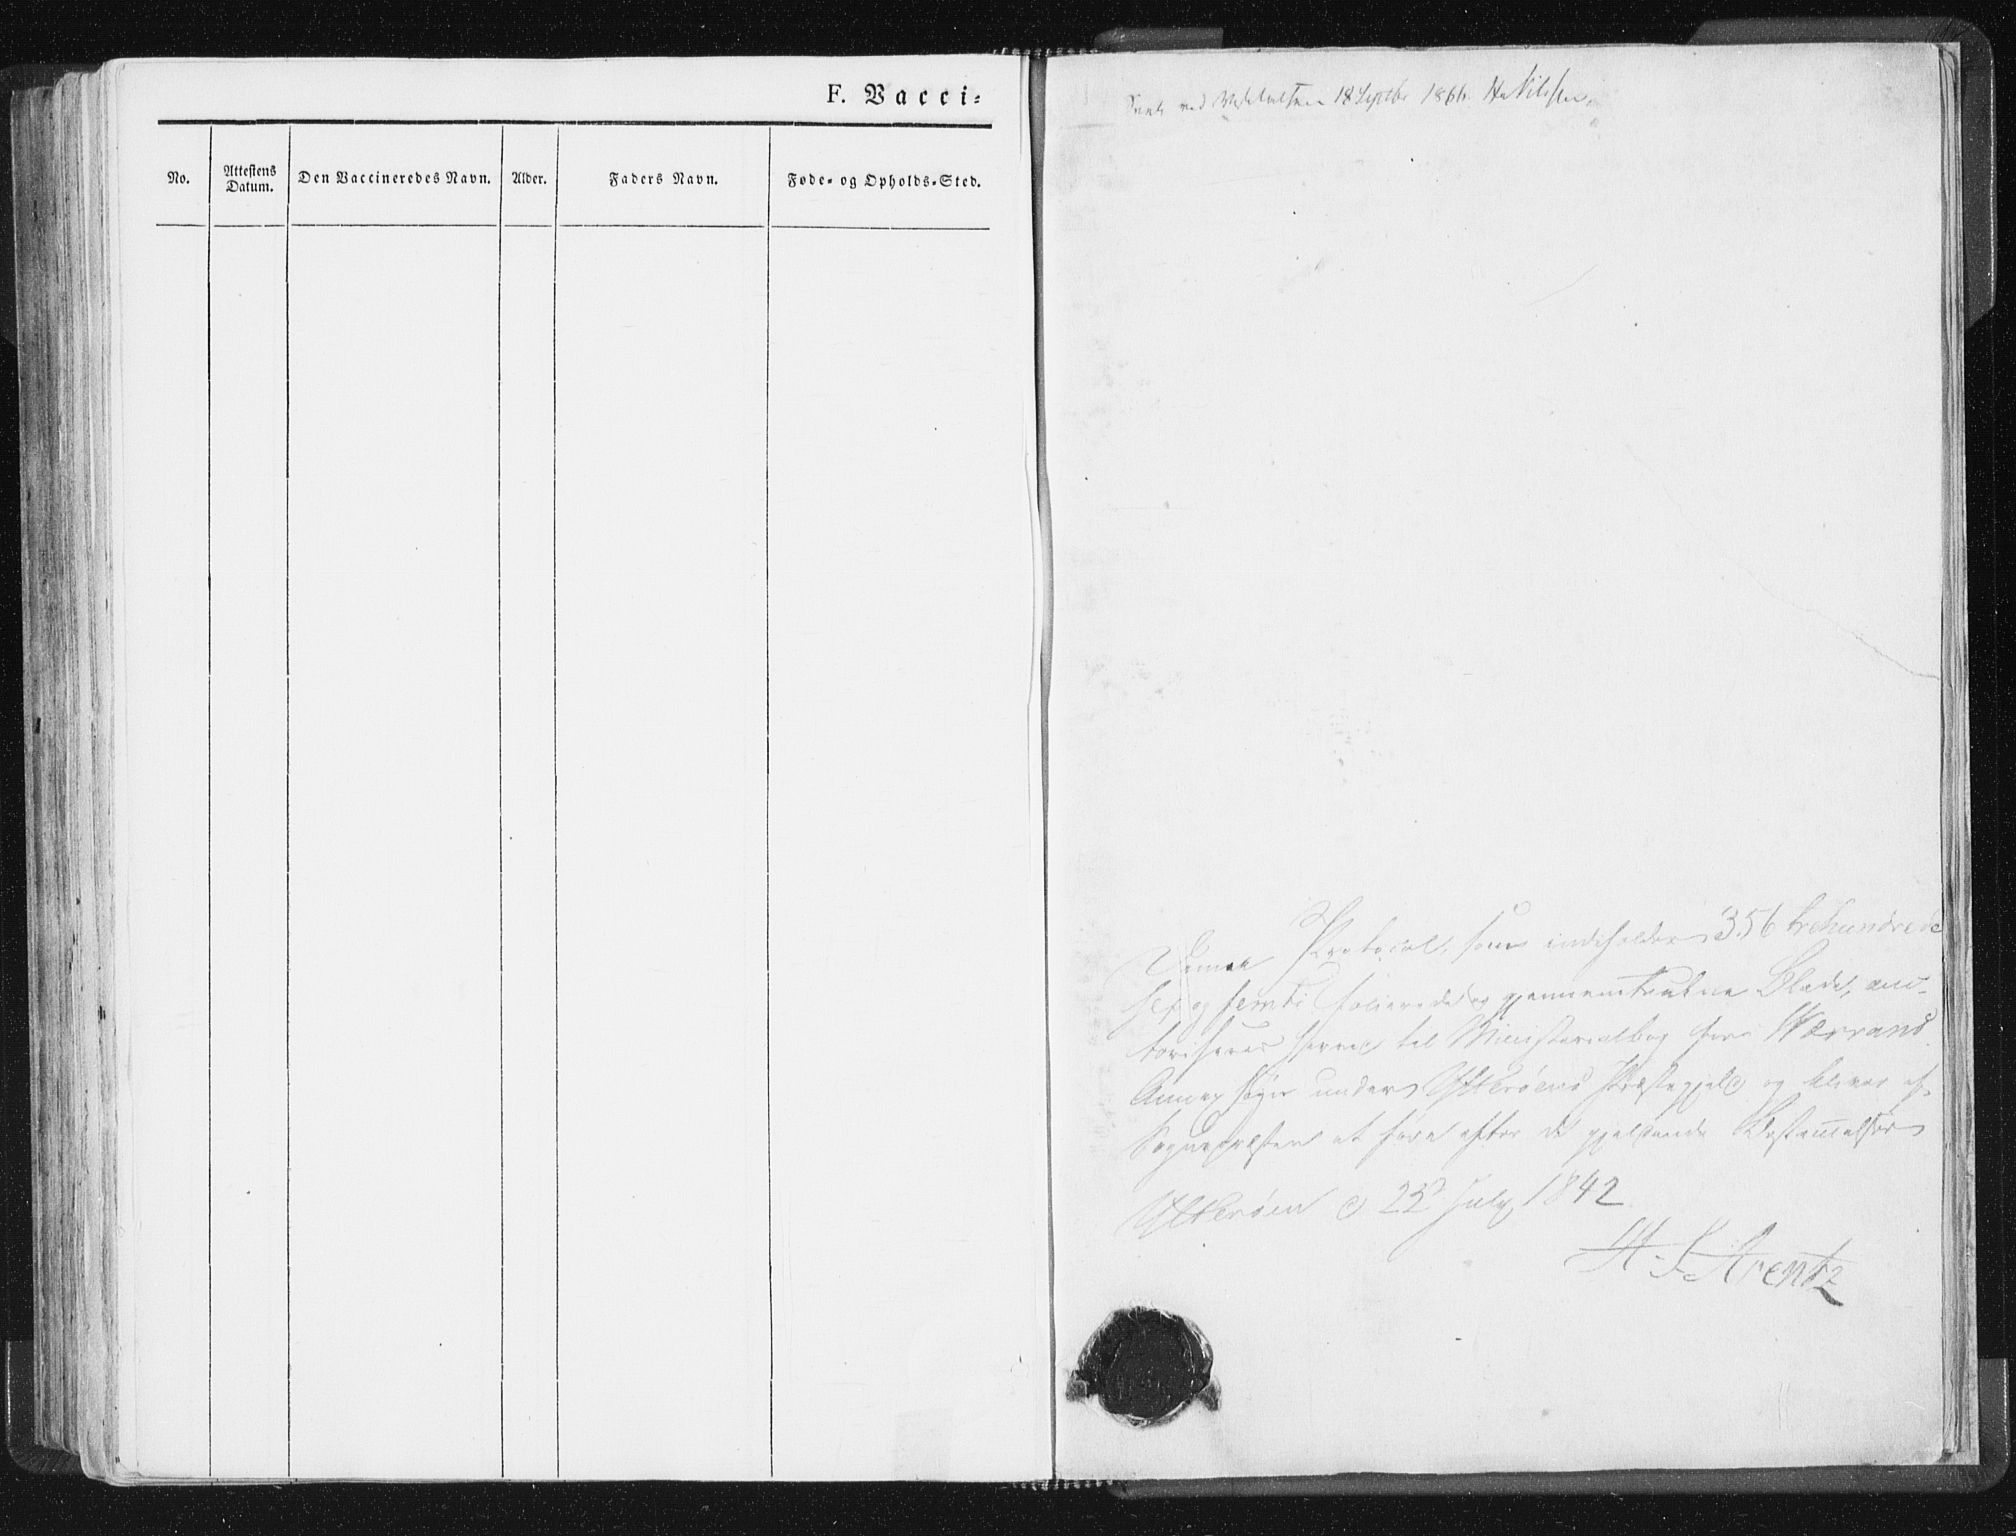 F. Vacci=
No.
Attestens Datum.
Den Vaccineredes Navn.
Alder.
Faders Navn.
Føde- og Opholds-Sted.
ved 18 Septbr 1866.
Denne Protocol, som indeholder 356 trehundrede
sex og femti folierede og gjennemtrukne Blade, au-
toriseres herved til Ministerialbog for Værrans
Annex Sogn under Ytterøens Præstegjeld og bliver af
Sognepræsten at føre efter de gjældende Bestemmelser
Ytterøen d 23 July 1842
H. Arentz